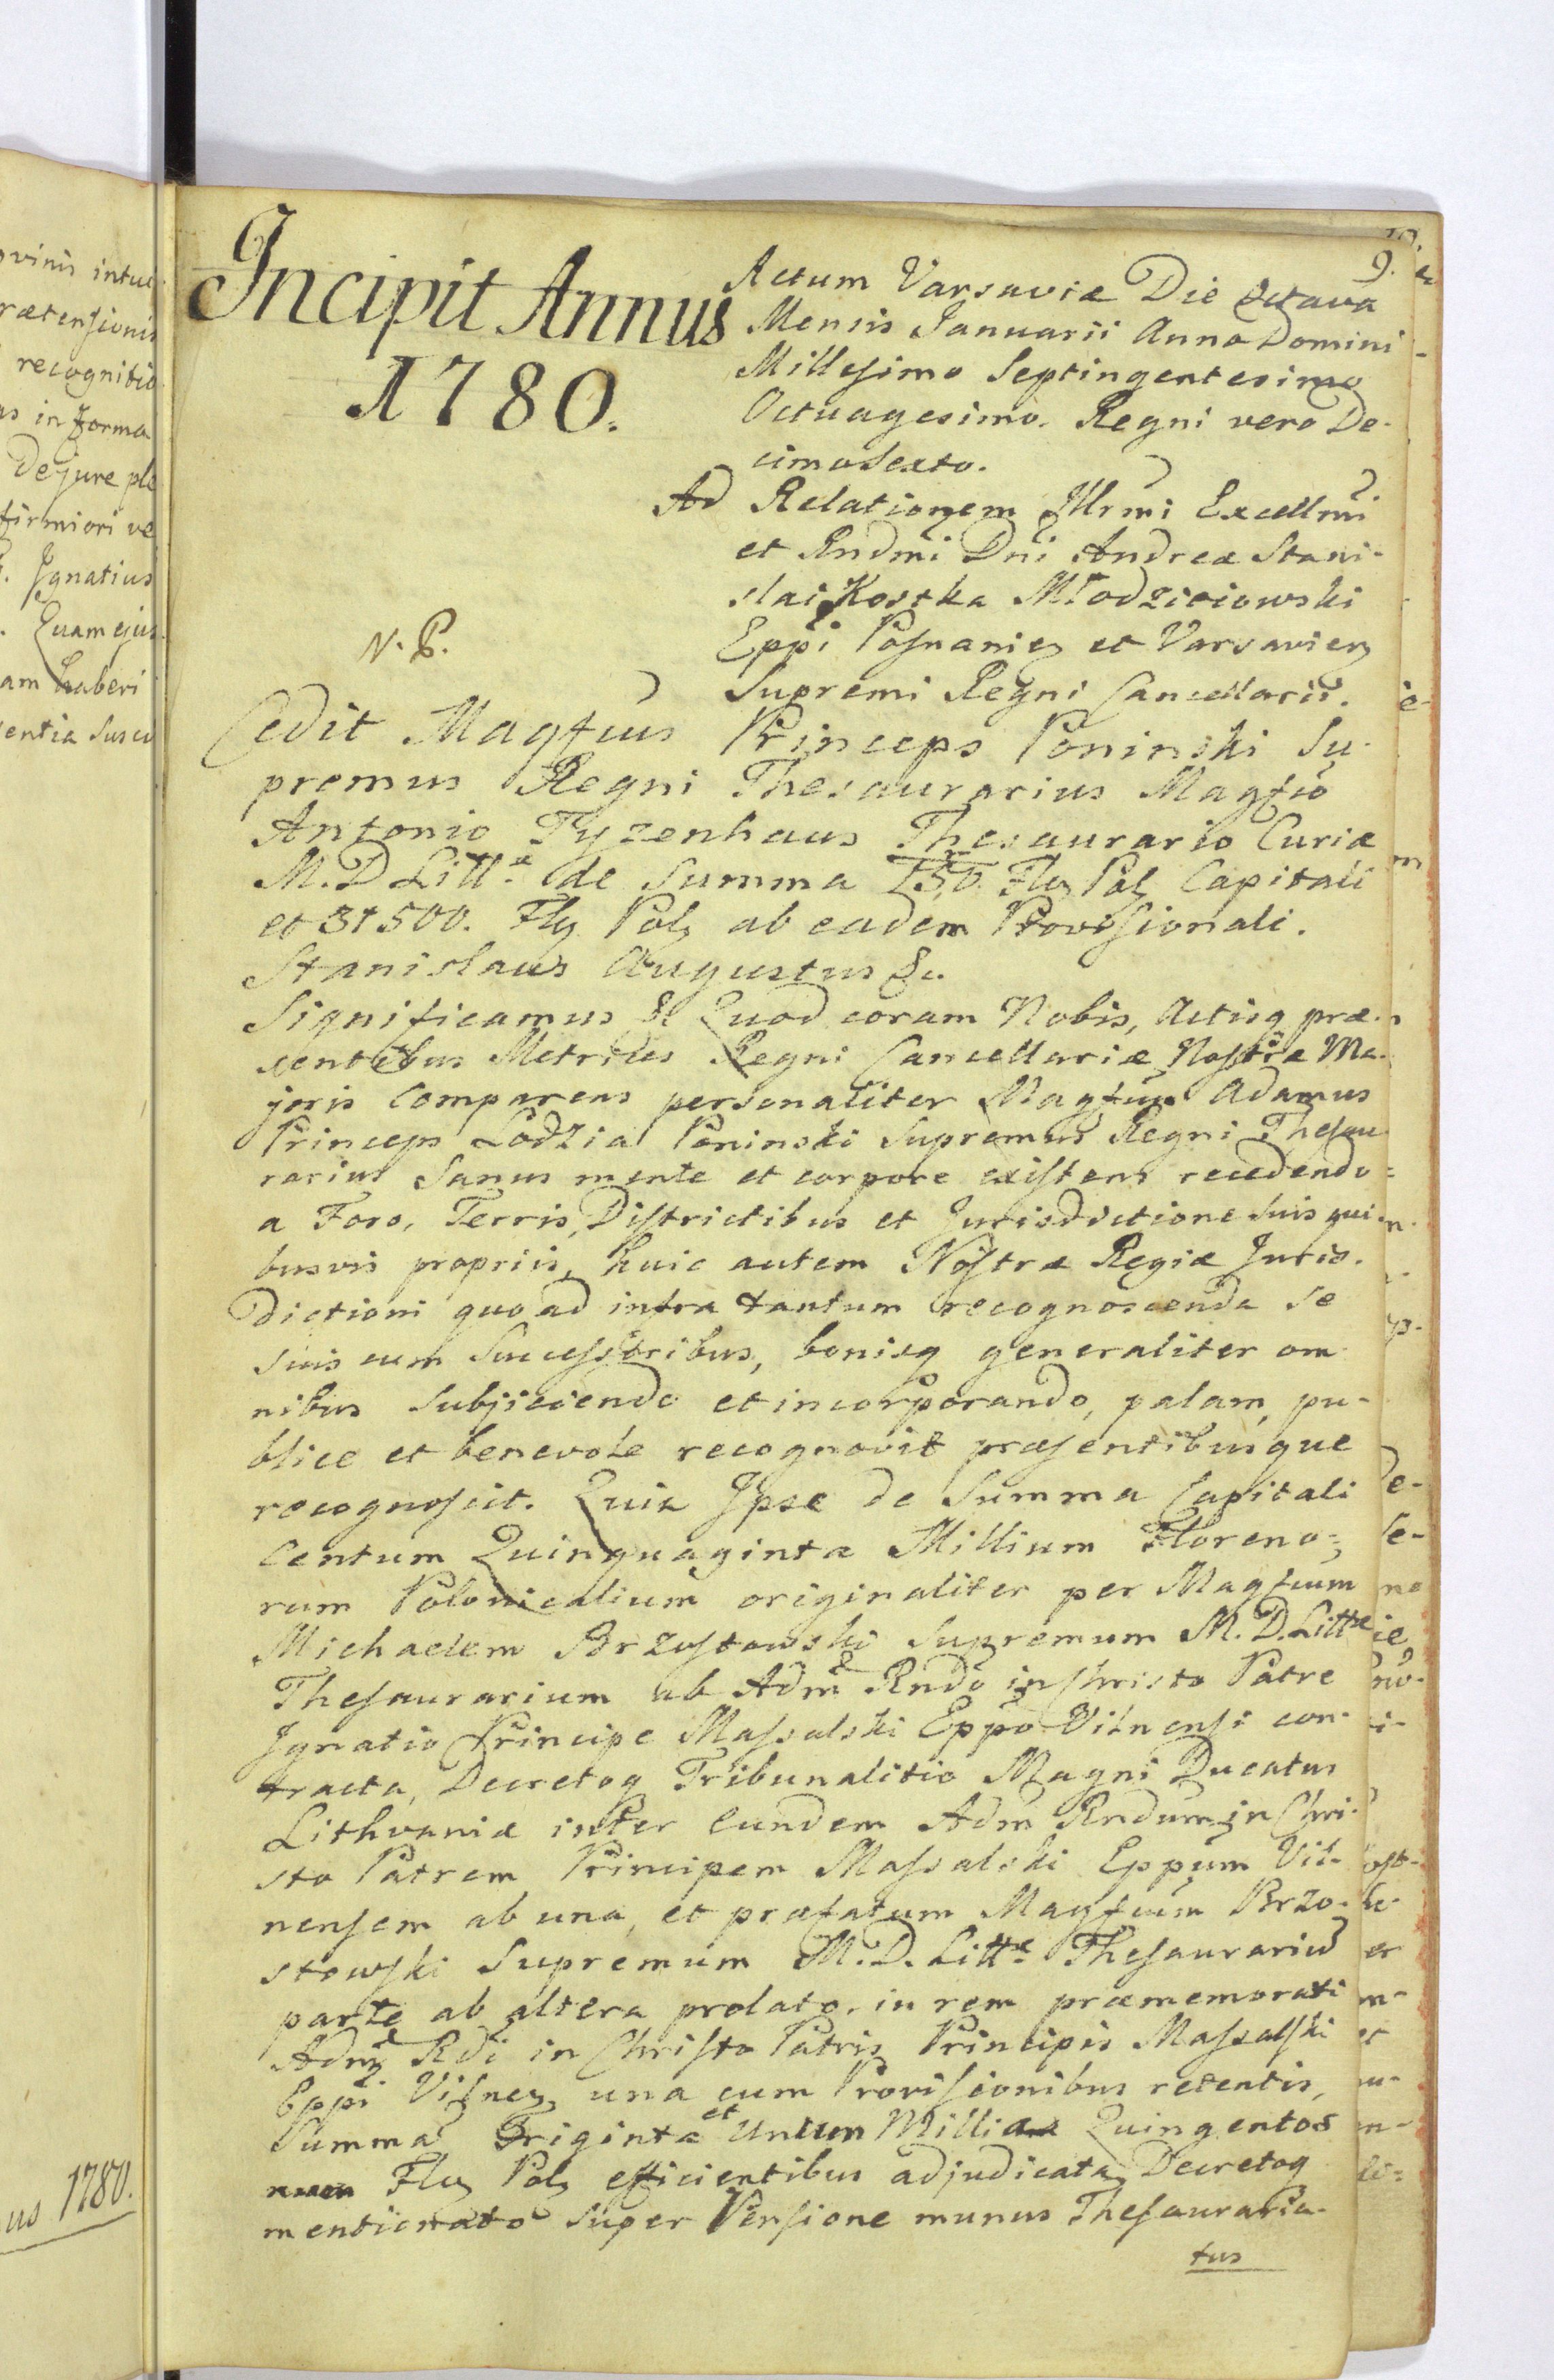 9.
Incipit Annus
1780.
Actum Varsaviæ Die Octava
Mensis Januarii Anno Domini
Millesimo Septingentesimo
Octuagesimo. Regni vero De-
cimosexto.
Ad Relationem Illrmi Excellmi
et Rndmi Dni Andreæ Stani-
slai Kostka Młodzieiowski
Eppi Posnanien et Varsavien
Supremi Regni Cancellarii.
N. P.
Cedit Magfcus Princeps Poninski Su-
premus Regni Thesaurarius Magfco
Antonio Tyzenhaus Thesaurario Curiæ
M. D Litt. de Summa Flr Pol Capitali
et 31500. Flr Pol ab eadem Provisionali.
Stanislaus Augustus &c.
Significamus &c Quod coram Nobis, Actisq præ-
sentibus Metrices Regni Cancellariæ Nostræ Ma-
joris Comparens personaliter Magfcus Adamus
Princeps Lodzia Poninski Supremus Regni Thesau
rarius Sanus mente et corpore existens recedendo
a Foro, Terris, Districtibus et Jurisdictione Suis qui-
busvis propriis, huic autem Nostræ Regiæ Juris-
dictioni quo ad infra tantum recognoscenda se
suis cum Successoribus, bonisq generaliter om
nibus Subjiciendo et incorporando, palam, pu-
blice et benevole recognovit præsentibusque
recognoscit. Quia Ipse de Summa Capitali
Centum Quinquaginta Millium Floreno=
rum Polonicalium originaliter per Magfcum
Michaelem Brzostowski Supremum M. D. Littæ
Thesaurarium ab Adm Rndo in Christo Patre
Ignatio Principe Massalski Eppo Vilnensi con-
tracta, Decretoq Tribunalitio Magni Ducatus
Lithvaniæ inter Eundem Adm Rndum in Chri-
sto Patrem Principem Massalski Eppum Vil-
nensem ab una, et præfatum Magfcum Brzo-
stowski Supremum M. D. Littæ Thesaurariu
parte ab altera prolato, in rem præmemorati
Adm Rdi in Christo Patris Principis Massalski
Eppi Vilnen una cum Provisionibus retentis,
Summa Triginta et Unum Millia Quingentos
Flr Pol efficientibus adjudicata, Decretoq
mentionato super Pensione munus Thesauraria-
tus
vinis intui
rætensionis
recognitio
as in forma
De jure ple
firmiori ve
Ignatius
Quam ejus
am haberi
entia Susce
us 1780.